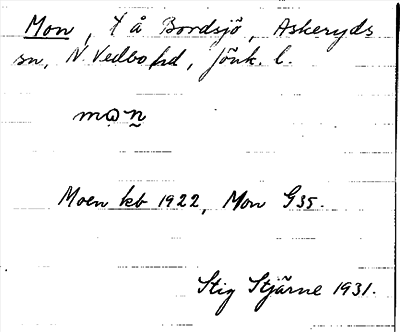 Mon, † å Bordsjö, Askeryds
sn, N. Vedbo hd, Jönk. l.
Moen kb 1922, Mon G35.
Stig Stjärne 1931.